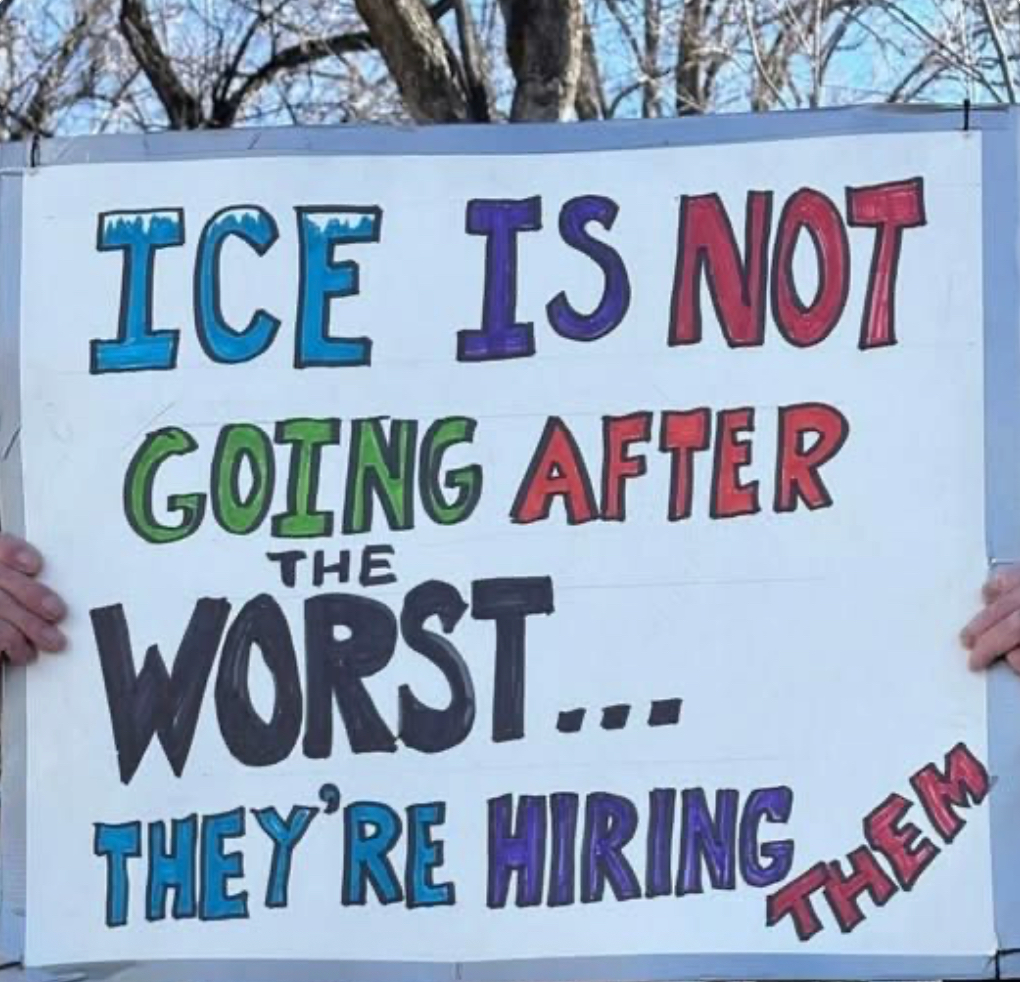 ICE IS NOT
GOING AFTER
THE
WORST...
THEY'RE HIRING THEM